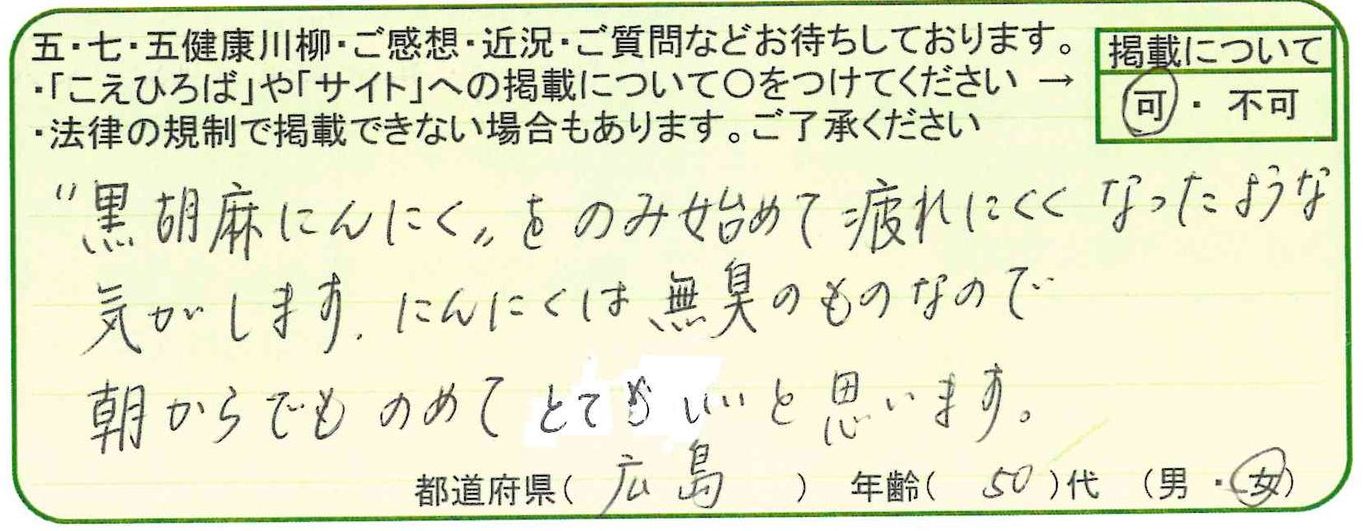 五・七・五健康川柳・ご感想・近況・ご質問などお待ちしております。
・「こえひろば」や「サイト」への掲載について〇をつけてください →
・法律の規制で掲載できない場合もあります。ご了承ください
掲載について
可・不可
"黒胡麻にんにく〟をのみ始めて疲れにくくなったような
気がします。にんにくは無臭のものなので
朝からでものめてとてもいいと思います。
都道府県( 広島 ) 年齢( 50 )代 (男・女)